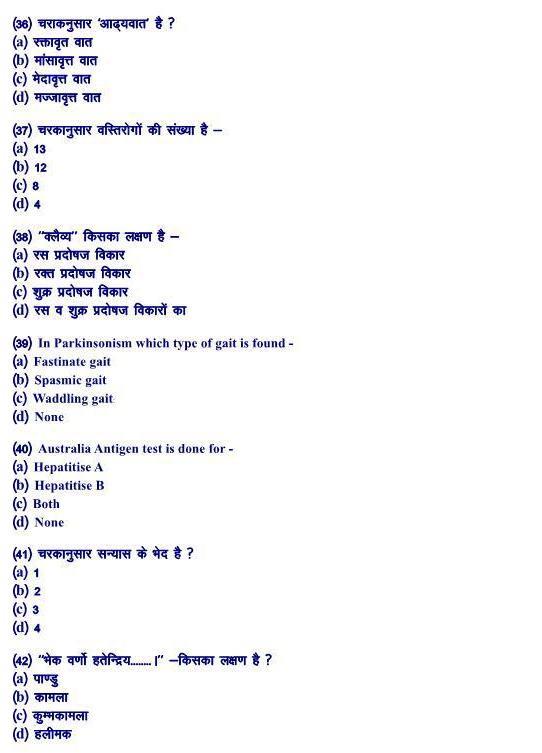 (36) चराकनुसार ‘आढ्यवात’ है ?
(a) रक्तावृत वात
(b) मांसावृत्त वात
(c) मेदावृत्त वात
(d) मज्जावृत्त वात
(37) चरकानुसार वस्तिरोगों की संख्या है –
(a) 13
(b) 12
(c) 8
(d) 4
(38) “क्लैव्य” किसका लक्षण है –
(a) रस प्रदोषज विकार
(b) रक्त प्रदोषज विकार
(c) शुक्र प्रदोषज विकार
(d) रस व शुक्र प्रदोषज विकारों का
(39) In Parkinsonism which type of gait is found -
(a) Fastinate gait
(b) Spasmic gait
(c) Waddling gait
(d) None
(40) Australia Antigen test is done for -
(a) Hepatitise A
(b) Hepatitise B
(c) Both
(d) None
(41) चरकानुसार सन्यास के भेद है ?
(a) 1
(b) 2
(c) 3
(d) 4
(42) “भेक वर्णो हतेन्द्रिय........ ।” –किसका लक्षण है ?
(a) पाण्डु
(b) कामला
(c) कुम्भकामला
(d) हलीमक